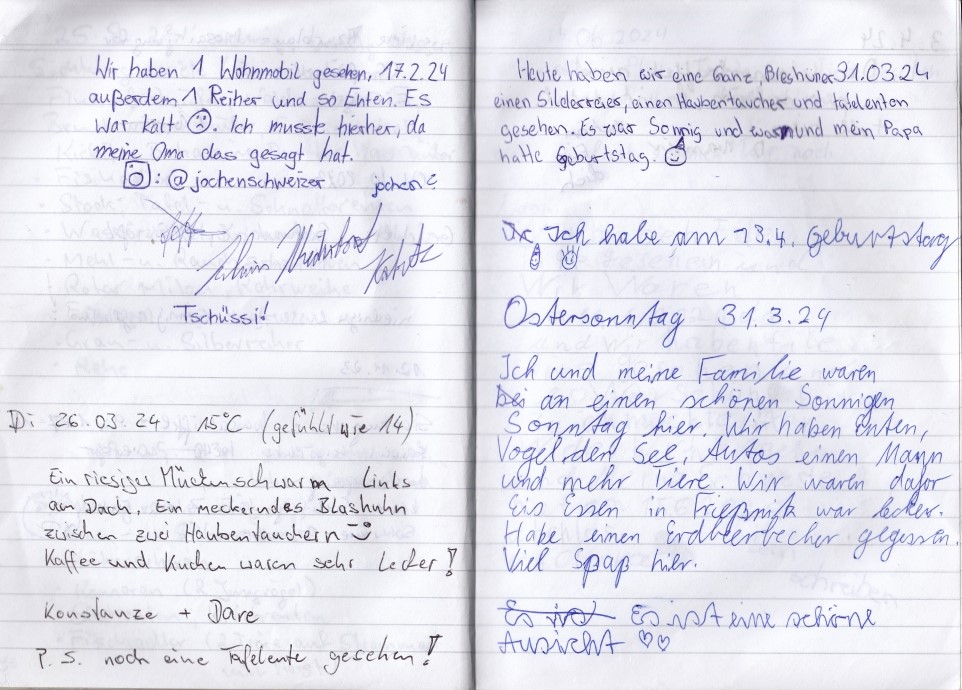 Wir haben 1 Wohnmobil gesehen, 17.2.24
außerdem 1 Reiher und so Enten. Es
war kalt ☹. Ich musste hierher, da
meine Oma das gesagt hat.
: @jochenschweizer jochen?
Tschüssi!
Di 26.03.24 15°C (gefühlt wie 14)
Ein riesiger Mückenschwarm Links
am Dach. Ein meckerndes Blashuhn
zwischen zwei Haubentauchern
Kaffee und Kuchen waren sehr lecker!
Konstanze + Dare
P.S. noch eine Tafelente gesehen!
Heute haben wir eine Ganz, Bleshüner 31.03.24
einen Silderreies, einen Haubentaucher und tafelenten
gesehen. Es war Sonnig und warm und mein Papa
hatte Geburtstag. ☺
Ich habe am 13.4. Geburtstag
Ostersonntag 31.3.24
Ich und meine Familie waren
an einen schönen Sonnigen
Sonntag hier. Wir haben Enten,
Vogel, den See, Autos einen Mann
und mehr Tiere. Wir waren dafor
Eis Essen in Frießnitz war lecker.
Habe einen Erdbeerbecher gegessen.
Viel Spaß hier.
Es ist Es ist eine schöne
Aussicht ♡♡